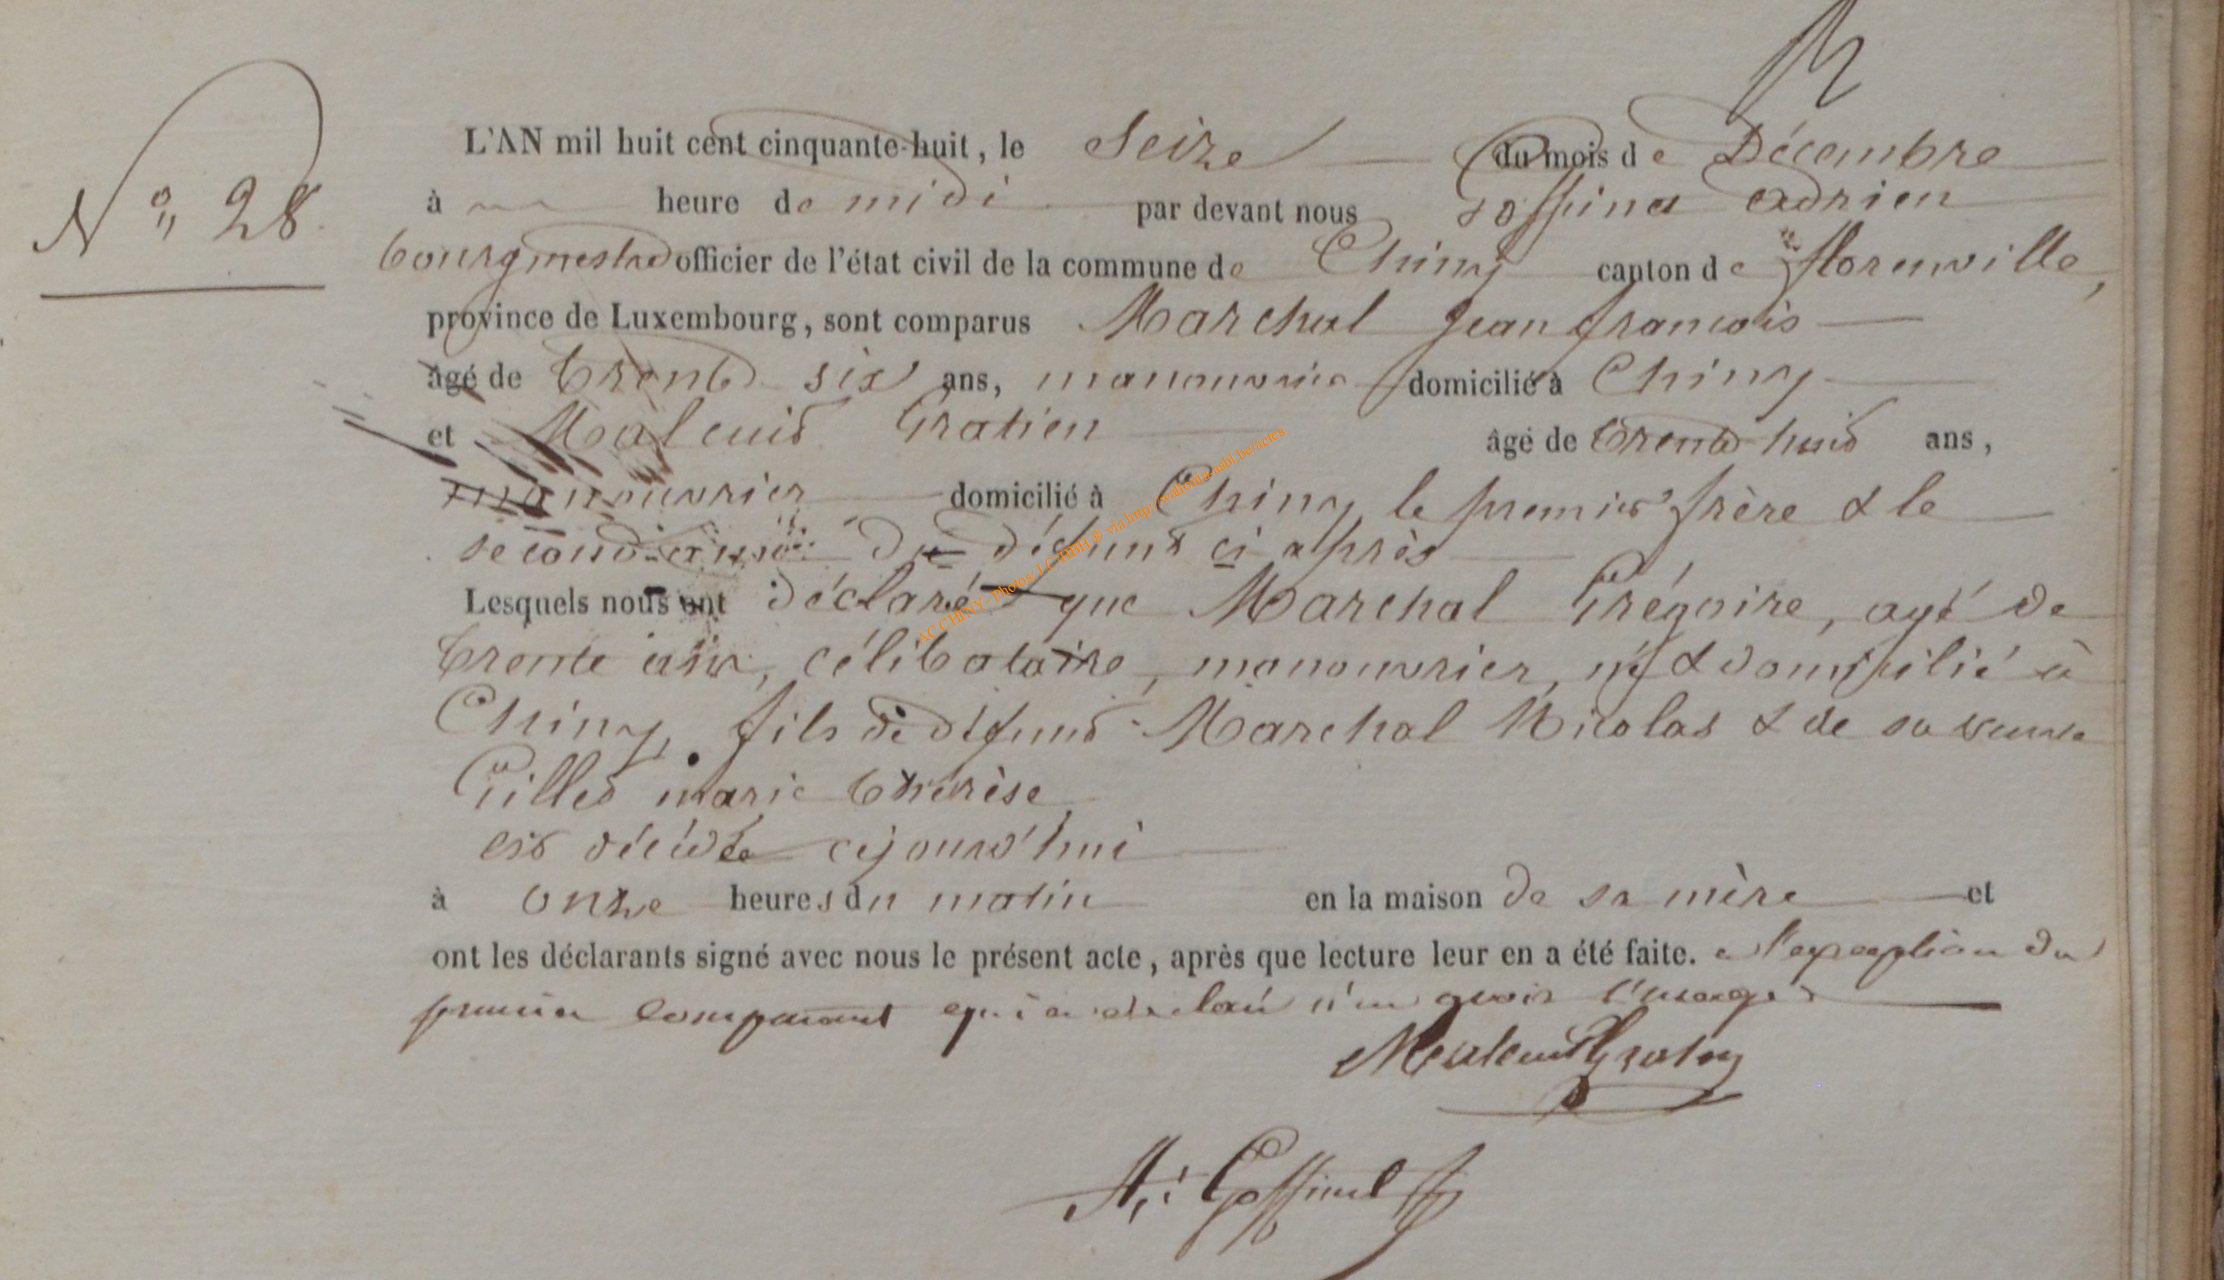 N° 28.
L'AN mil huit cent cinquante-huit, le Seize du mois de Décembre
à heure de midi par devant nous Goffinet Adrien
bourgmestre officier de l'état civil de la commune de Chiny canton de florenville,
province de Luxembourg, sont comparus Marchal Jean françois
âgé de trente six ans, manouvrier domicilié à Chiny
et Maleuit Gratien âgé de trente-huit ans,
manouvrier domicilié à Chiny le premier frère & le
second ami du défunt ci après
Lesquels nous ont déclaré que Marchal Grégoire, agé de
trente ans, célibataire, manouvrier, né & domicilié à
Chiny, fils de défunt Marchal Nicolas & de sa veuve
Gilles marie thérèse
est décédé cejourd'hui
à onze heures du matin en la maison de sa mère et
ont les déclarants signé avec nous le présent acte, après que lecture leur en a été faite. à l'exception du
premier comparant qui a déclaré n'en avoir l'usage
Maleuit Gratien
A: Goffinet
AC CHINY - Photos J.C. via